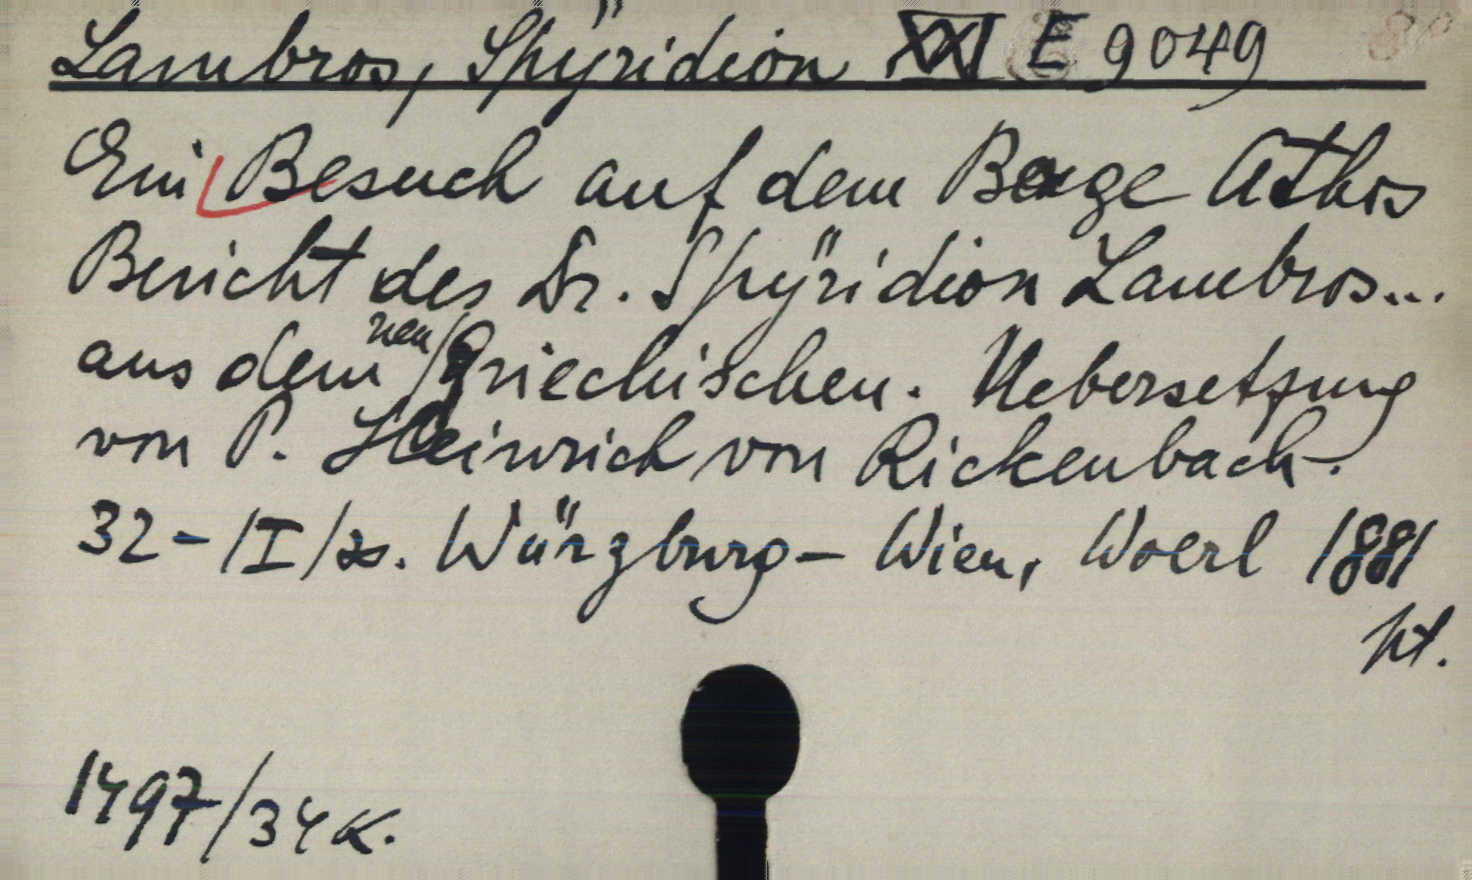 Lambros, Spÿridion XXI E 9049
Ein Besuch auf dem Berge Athos
Bericht des Dr. Spÿridion Lambros...
aus dem neu/griechischen. Uebersetzung
von P. Heinrich von Rickenbach.
32-/I/ss. Würzburg - Wien, Woerl 1881
kt.
1497/34 K.